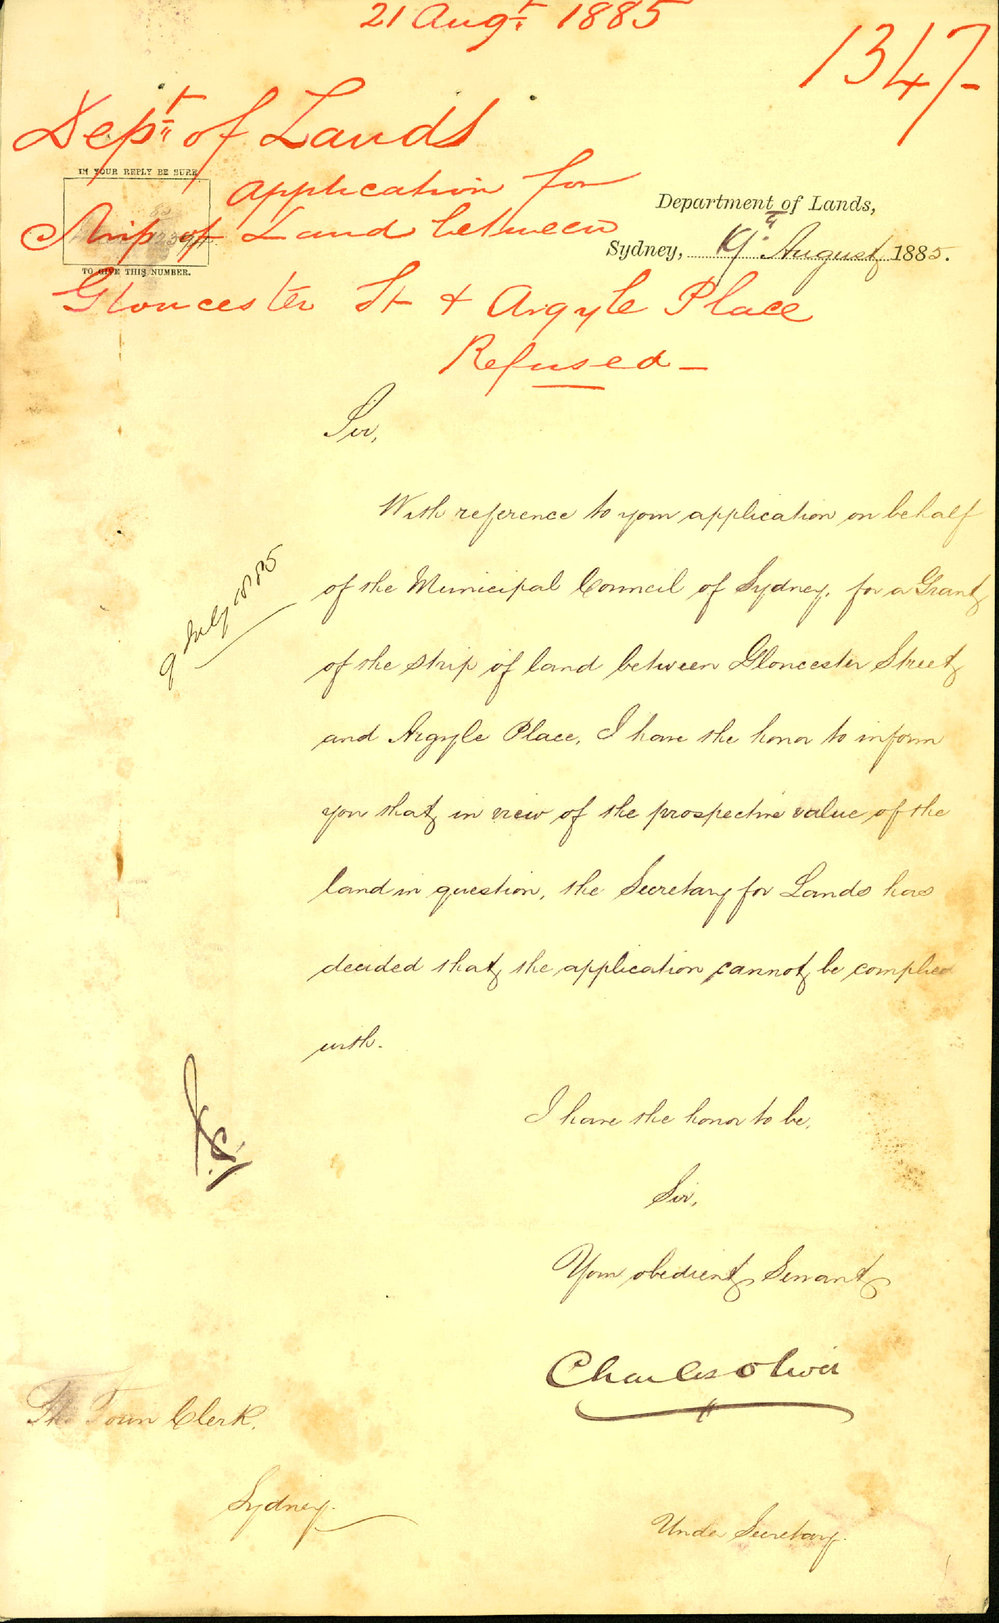 21 Augt. 1885
1347/-
Dept. of Lands
application for
Strip of Land between
Gloucester St & Argyle Place
Refused -
IN YOUR REPLY BE SURE
TO GIVE THIS NUMBER.
Department of Lands,
Sydney, 19th August 1885.
Sir,
With reference to your application on behalf
9 July 1885
of the Municipal Council of Sydney, for a Grant
of the strip of land between Gloucester Street
and Argyle Place, I have the honor to inform
you that, in view of the prospective value of the
land in question, the Secretary for Lands has
decided that the application cannot be complied
with.
I have the honor to be,
Sir,
Your obedient Servant
Charles Oliver
The Town Clerk,
Sydney.
Under Secretary.